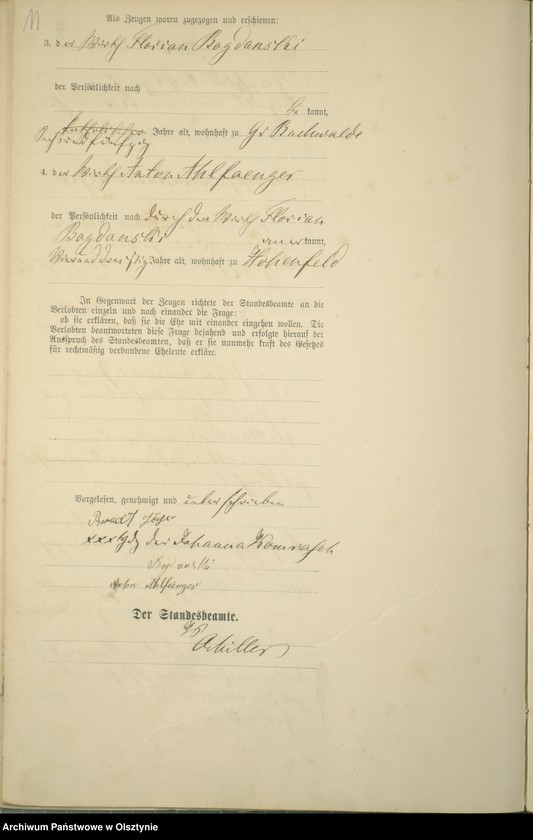 11
Als Zeugen waren zugezogen und erschienen:
3. der Wirth Florian Bogdanski
der Persönlichkeit nach
be kannt,
katholischer Jahre alt, wohnhaft zu Gr Buchwalde
Sechsundfünfzig
4. der Wirth Anton Ahlfaenger
der Persönlichkeit nach durch den Wirth Florian
Bogdanski anerkannt,
Vierunddreißig Jahre alt, wohnhaft zu Hohenfeld
In Gegenwart der Zeugen richtete der Standesbeamte an die
Verlobten einzeln und nach einander die Frage:
ob sie erklären, daß sie die Ehe mit einander eingehen wollen. Die
Verlobten beantworteten diese Frage bejahend und erfolgte hierauf der
Ausspruch des Standesbeamten, daß er sie nunmehr kraft des Gesetzes
für rechtmäßig verbundene Eheleute erkläre.
Vorgelesen, genehmigt und unterschrieben
xxx der Johanna
Bogdanski
Anton Ahlfaenger
Der Standesbeamte.
Archiwum Państwowe w Olsztynie